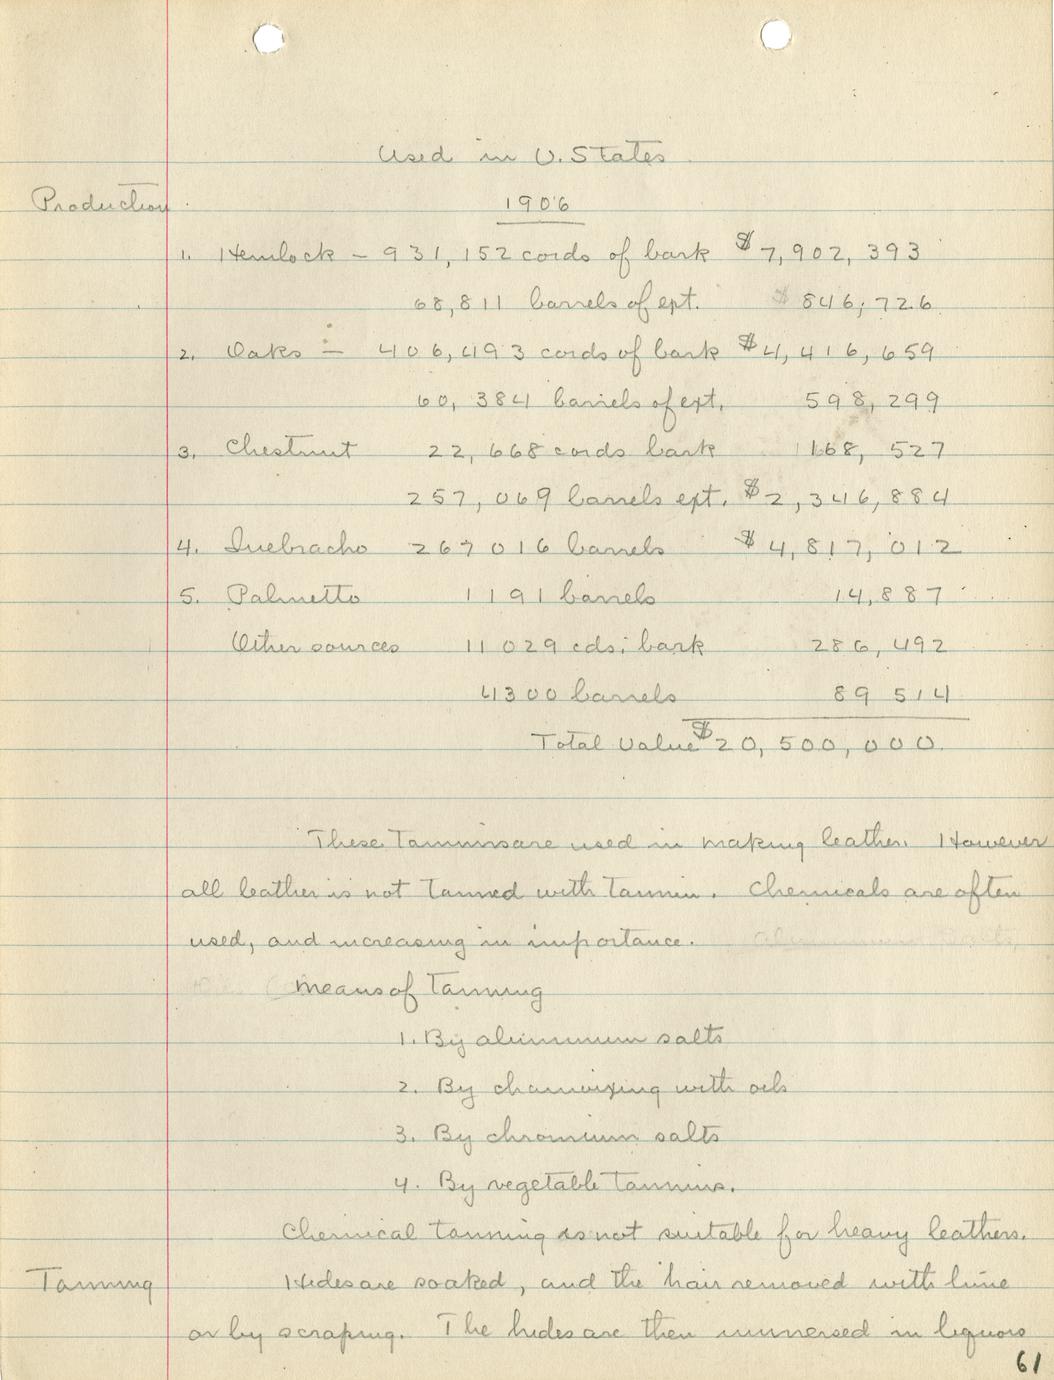 Used in U. States
Production 1906
1. Hemlock – 931,152 cords of bark $7,902,393
68,811 barrels of ext. $846,726
2. Oaks – 406,493 cords of bark $4,416,659
60,384 barrels of ext. 598,299
3. Chestnut 22,668 cords bark 168,527
257,069 barrels ext. $2,346,884
4. Quebracho 267016 barrels $4,817,012
5. Palmetto 1191 barrels 14,887
Other sources 11029 cds. bark 286,492
4300 barrels 89 514
Total Value $20,500,000
These Tannins are used in making leather. However
all leather is not Tanned with Tannin. Chemicals are often
used, and increasing in importance.
Means of Tanning
1. By aluminum salts
2. By chamoixing with oils
3. By chromium salts
4. By vegetable Tannins.
Chemical tanning is not suitable for heavy leathers.
Tanning Hides are soaked, and the hair removed with lime
or by scraping. The hides are then immersed in liquors
61